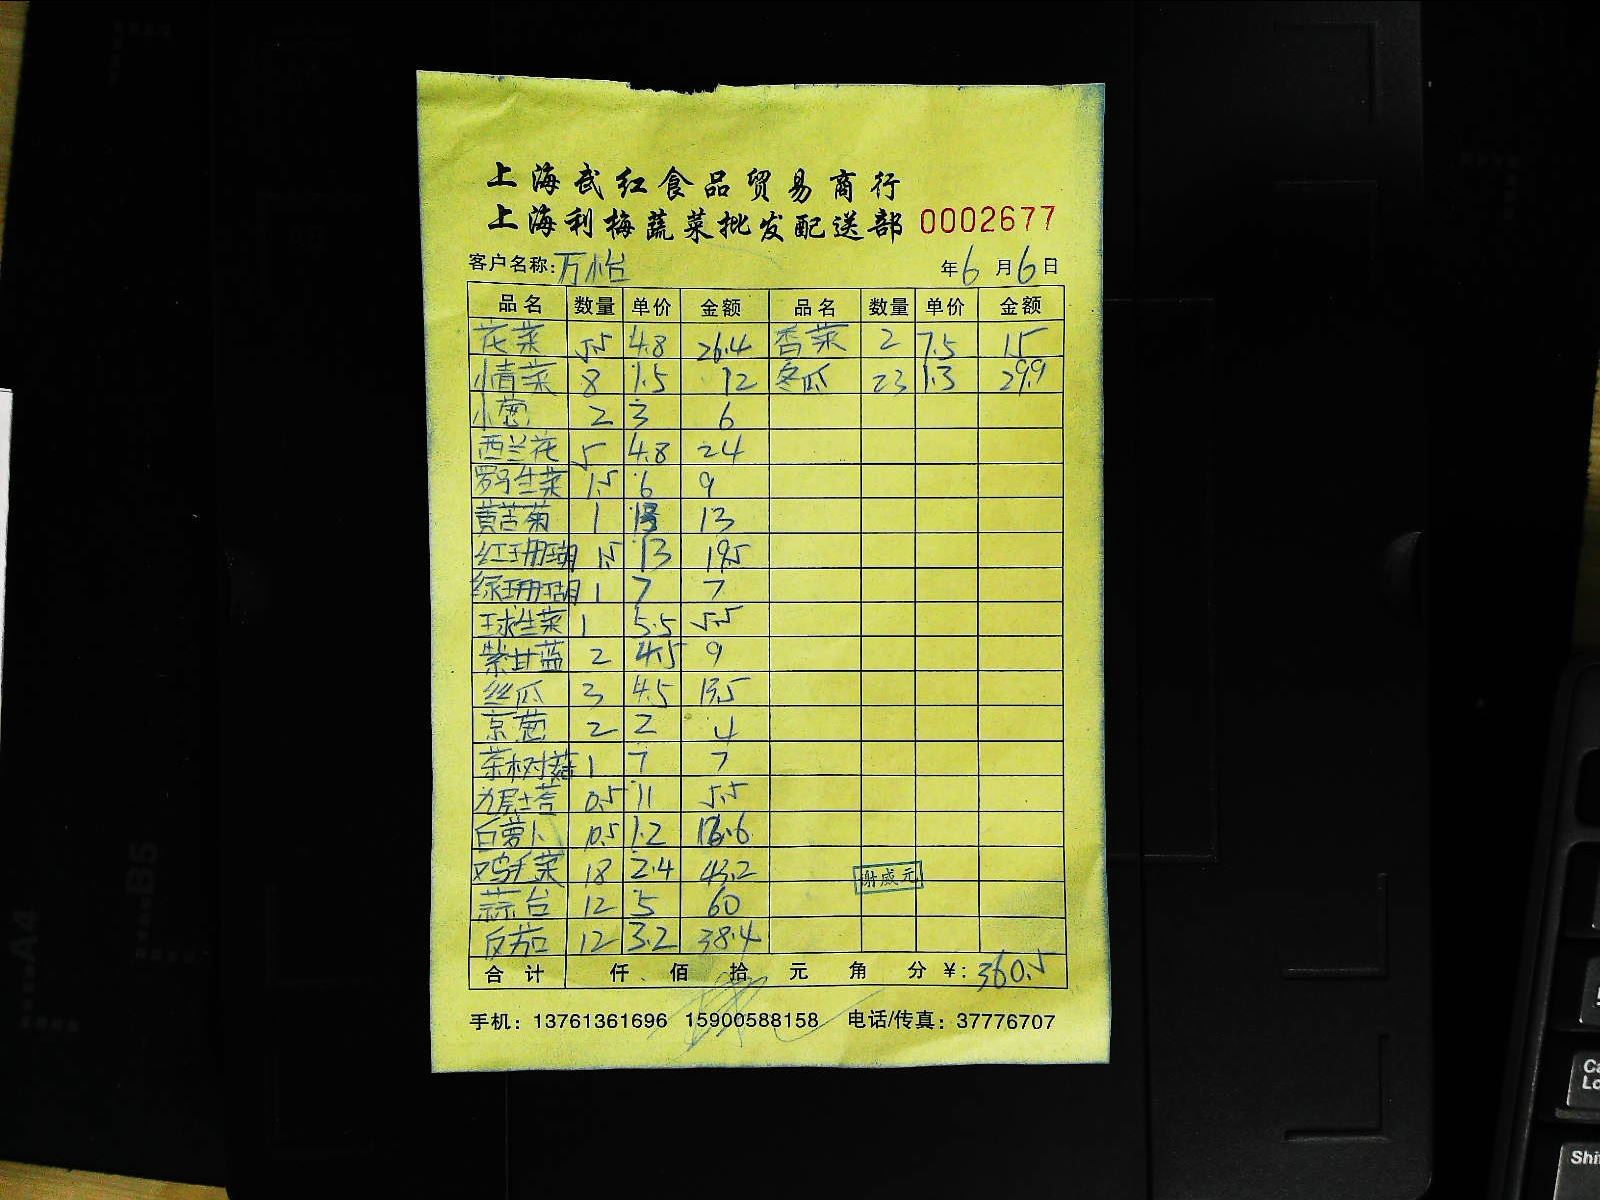 上海武红食品贸易商行
上海利梅蔬菜批发配送部 0002677
客户名称:万怡 年6月6日
品名 数量 单价 金额 品名 数量 单价 金额
花菜 5.5 4.8 26.4 香菜 2 7.5 15
小青菜 8 1.5 12 冬瓜 23 1.3 29.9
小葱 2 3 6
西兰花 5 4.8 24
罗马生菜 1.5 6 9
黄苦菊 1 13 13
红珊瑚 1.5 13 19.5
绿珊瑚 1 7 7
球生菜 1 5.5 5.5
紫甘蓝 2 4.5 9
丝瓜 3 4.5 13.5
京葱 2 2 4
茶树菇 1 7 7
九层塔 0.5 11 5.5
白萝卜 10.5 1.2 12.6
鸡毛菜 18 2.4 43.2
谢威元
蒜台 12 5 60
反茄 12 3.2 38.4
合计 仟 佰 拾 元 角 分 ¥: 360.5
手机: 13761361696 15900588158 电话/传真: 37776707
A4
B5
Shi